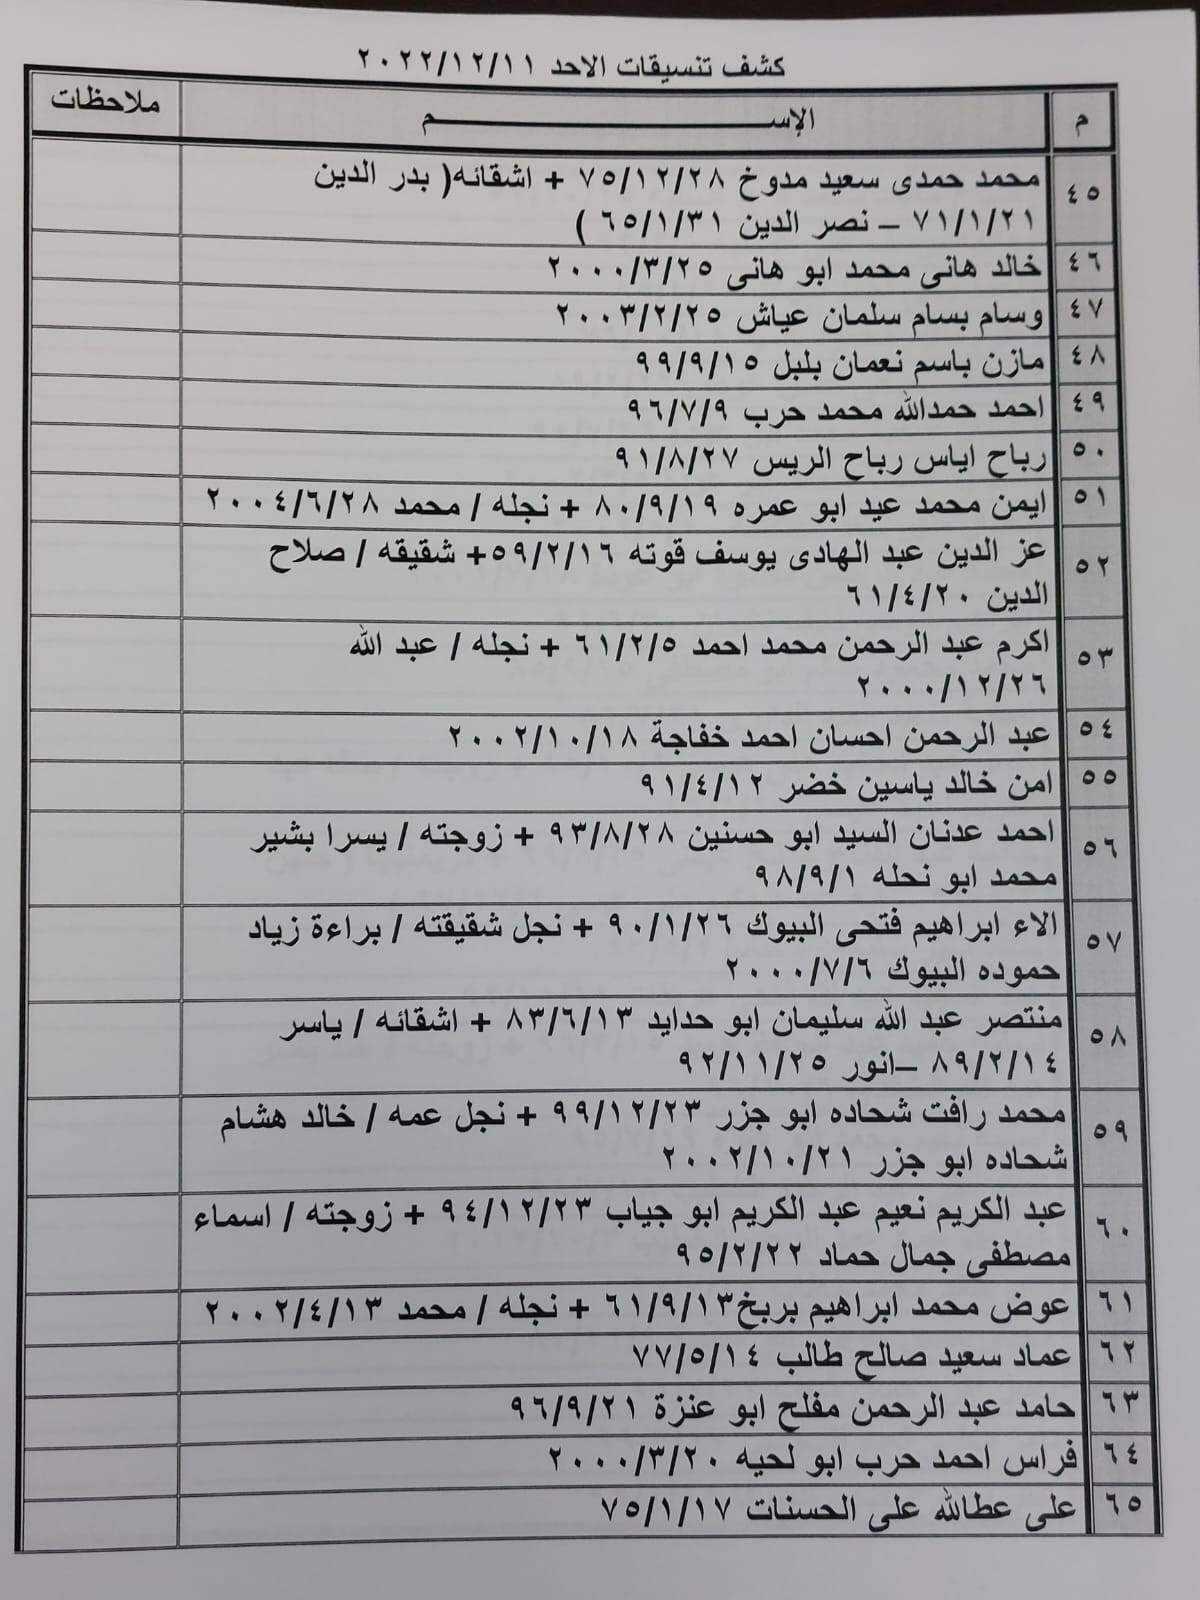 كشف تنسيقات الاحد ٢٠٢٢/١٢/١١
م الإســـــــم ملاحظات
٤٥ محمد حمدى سعيد مدوخ ٧٥/١٢/٢٨ + اشقائه( بدر الدين
٧١/١/٢١ – نصر الدين ٦٥/١/٣١ )
٤٦ خالد هانى محمد ابو هانى ٢٠٠٠/٣/٢٥
٤٧ وسام بسام سلمان عياش ٢٠٠٣/٢/٢٥
٤٨ مازن باسم نعمان بلبل ٩٩/٩/١٥
٤٩ احمد حمدالله محمد حرب ٩٦/٧/٩
٥٠ رباح اياس رباح الريس ٩١/٨/٢٧
٥١ ايمن محمد عيد ابو عمره ٨٠/٩/١٩ + نجله / محمد ٢٠٠٤/٦/٢٨
٥٢ عز الدين عبد الهادى يوسف قوته ٥٩/٢/١٦+ شقيقه / صلاح
الدين ٦١/٤/٢٠
٥٣ اكرم عبد الرحمن محمد احمد ٦١/٢/٥ + نجله / عبد الله
٢٠٠٠/١٢/٢٦
٥٤ عبد الرحمن احسان احمد خفاجة ٢٠٠٢/١٠/١٨
٥٥ امن خالد ياسين خضر ٩١/٤/١٢
٥٦ احمد عدنان السيد ابو حسنين ٩٣/٨/٢٨ + زوجته / يسرا بشير
محمد ابو نحله ٩٨/٩/١
٥٧ الاء ابراهيم فتحى البيوك ٩٠/١/٢٦ + نجل شقيقته / براءة زياد
حموده البيوك ٢٠٠٠/٧/٦
٥٨ منتصر عبد الله سليمان ابو حدايد ٨٣/٦/١٣ + اشقائه / ياسر
٨٩/٢/١٤ –انور ٩٢/١١/٢٥
٥٩ محمد رافت شحاده ابو جزر ٩٩/١٢/٢٣ + نجل عمه / خالد هشام
شحاده ابو جزر ٢٠٠٢/١٠/٢١
٦٠ عبد الكريم نعيم عبد الكريم ابو جياب ٩٤/١٢/٢٣ + زوجته / اسماء
مصطفى جمال حماد ٩٥/٢/٢٢
٦١ عوض محمد ابراهيم بربخ٦١/٩/١٣ + نجله / محمد ٢٠٠٢/٤/١٣
٦٢ عماد سعيد صالح طالب ٧٧/٥/١٤
٦٣ حامد عبد الرحمن مفلح ابو عنزة ٩٦/٩/٢١
٦٤ فراس احمد حرب ابو لحيه ٢٠٠٠/٣/٢٠
٦٥ على عطالله على الحسنات ٧٥/١/١٧